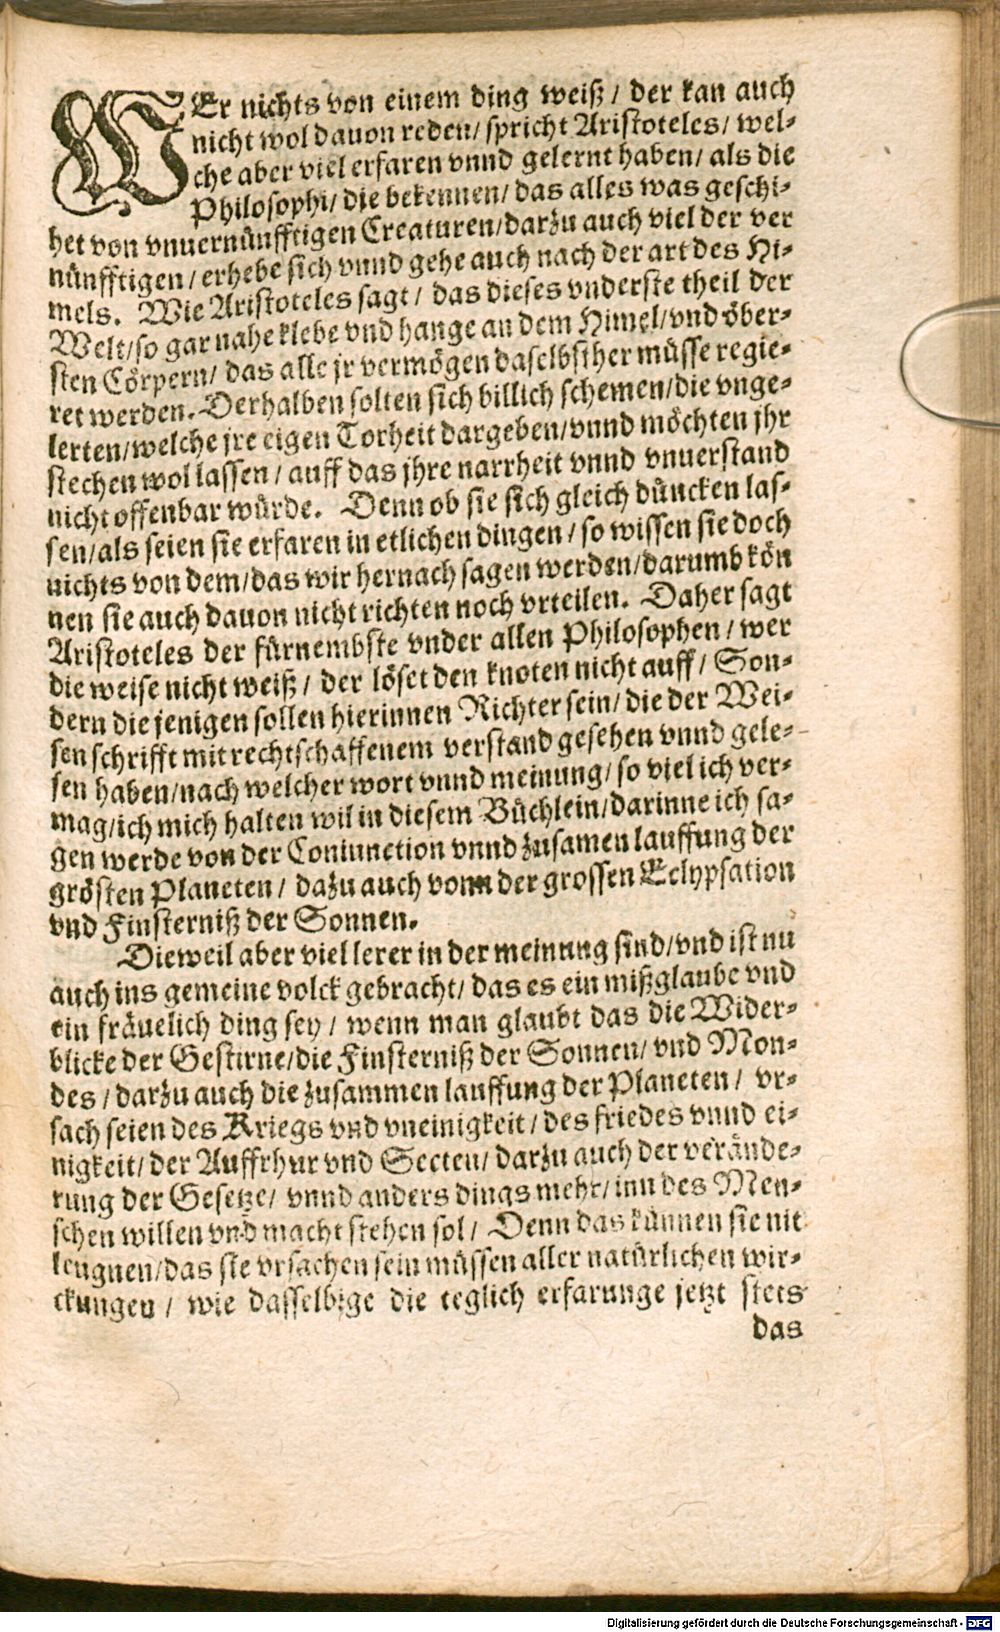 WEr nichts von einem ding weiß / der kan auch
nicht wol dauon reden / spricht Aristoteles / wel-
che aber viel erfaren vnnd gelernt haben / als die
Philosophi / die bekennen / das alles was geschi-
het von vnuernünfftigen Creaturen / darzu auch viel der ver
nünfftigen / erhebe sich vnnd gehe auch nach der art des Hi-
mels. Wie Aristoteles sagt / das dieses vnderste theil der
Welt / so gar nahe klebe vnd hange an dem Himel / vnd öber-
sten Cörpern / das alle jr vermögen daselbsther müsse regie-
ret werden. Derhalben solten sich billich schemen / die vnge-
lerten / welche jre eigen Torheit dargeben / vnnd möchten jhr
stechen wol lassen / auff das jhre narrheit vnnd vnuerstand
nicht offenbar würde. Denn ob sie sich gleich düncken las-
sen / als seien sie erfaren in etlichen dingen / so wissen sie doch
nichts von dem / das wir hernach sagen werden / darumb kön
nen sie auch dauon nicht richten noch vrteilen. Daher sagt
Aristoteles der fürnembste vnder allen Philosophen / wer
die weise nicht weiß / der löset den knoten nicht auff / Son-
dern die jenigen sollen hierinnen Richter sein / die der Wei-
sen schrifft mit rechtschaffenem verstand gesehen vnnd gele-
sen haben / nach welcher wort vnnd meinung / so viel ich ver-
mag / ich mich halten wil in diesem Büchlein / darinne ich sa-
gen werde von der Coniunction vnnd zusamen lauffung der
grösten Planeten / dazu auch vonn der grossen Eclypsation
vnd Finsterniß der Sonnen.
Dieweil aber viel lerer in der meinung sind / vnd ist nu
auch ins gemeine volck gebracht / das es ein mißglaube vnd
ein fräuelich ding sey / wenn man glaubt das die Wider-
blicke der Gestirne / die Finsterniß der Sonnen / vnd Mon-
des / darzu auch die zusammen lauffung der Planeten / vr-
sach seien des Kriegs vnd vneinigkeit / des friedes vnnd ei-
nigkeit / der Auffrhur vnd Secten / darzu auch der verände-
rung der Gesetze / vnnd anders dings mehr / inn des Men-
schen willen vnd macht stehen sol / Denn das künnen sie nit
leugnen / das sie vrsachen sein müssen aller natürlichen wir-
ckungen / wie dasselbige die teglich erfarunge jetzt stets
das
Digitalisierung gefördert durch die Deutsche Forschungsgemeinschaft - DFG